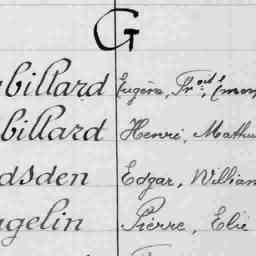 G
billard Eugène,
billard Henri, Mathu
dsden Edgar, William
gelin Pierre, Elie